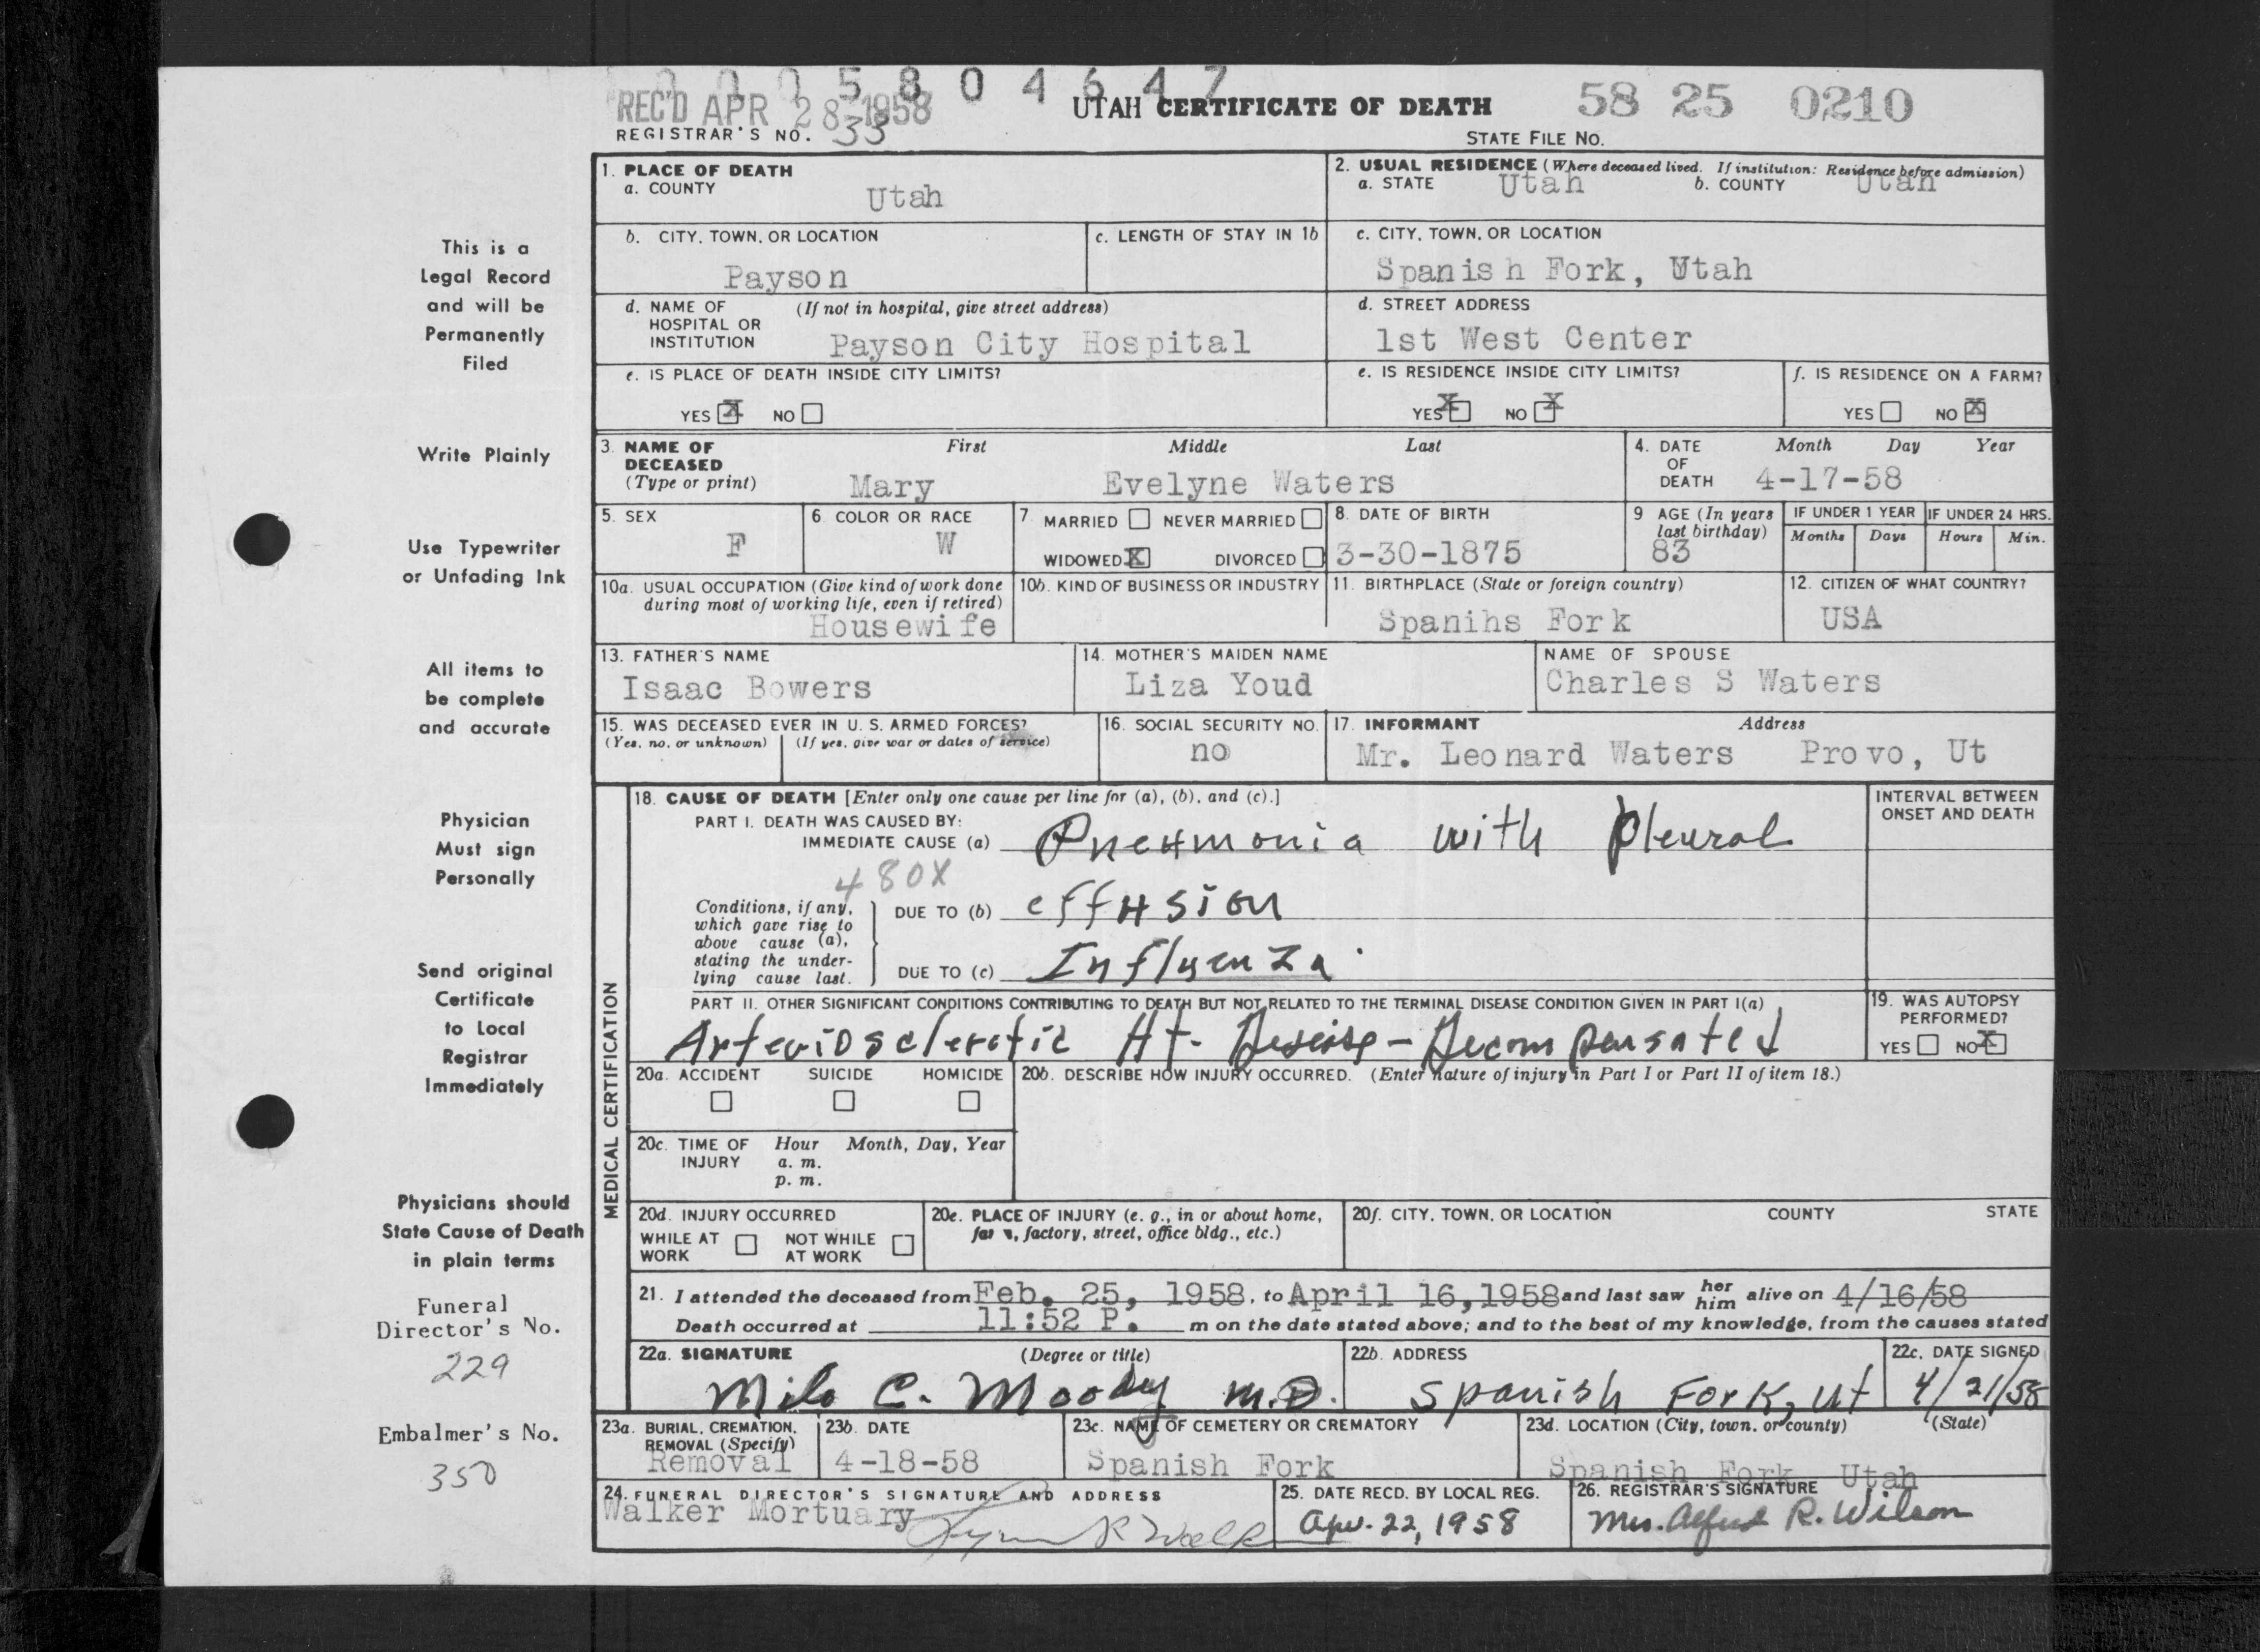 0 0 0 5 8 0 4 6 4 7
REC'D APR 28 1958
UTAH CERTIFICATE OF DEATH
58 25 0210
REGISTRAR'S NO. 33
STATE FILE NO.
This is a
Legal Record
and will be
Permanently
Filed
Write Plainly
Use Typewriter
or Unfading Ink
All items to
be complete
and accurate
Physician
Must sign
Personally
Send original
Certificate
to Local
Registrar
Immediately
Physicians should
State Cause of Death
in plain terms
Funeral
Director's No.
229
Embalmer's No.
350
1. PLACE OF DEATH
a. COUNTY
Utah
2. USUAL RESIDENCE (Where deceased lived. If institution: Residence before admission)
a. STATE Utah b. COUNTY Utah
b. CITY, TOWN, OR LOCATION
Payson
c. LENGTH OF STAY IN 1b
c. CITY, TOWN, OR LOCATION
Spanish Fork, Utah
d. NAME OF (If not in hospital, give street address)
HOSPITAL OR
INSTITUTION Payson City Hospital
d. STREET ADDRESS
1st West Center
e. IS PLACE OF DEATH INSIDE CITY LIMITS?
YES X NO
e. IS RESIDENCE INSIDE CITY LIMITS?
YES X NO X
f. IS RESIDENCE ON A FARM?
YES NO X
3. NAME OF DECEASED
(Type or print)
First Middle Last
Mary Evelyne Waters
4. DATE OF DEATH
Month Day Year
4-17-58
5. SEX
F
6 COLOR OR RACE
W
7 MARRIED NEVER MARRIED
WIDOWED X DIVORCED
8. DATE OF BIRTH
3-30-1875
9 AGE (In years
last birthday)
83
IF UNDER 1 YEAR
Months Days
IF UNDER 24 HRS.
Hours Min.
10a. USUAL OCCUPATION (Give kind of work done
during most of working life, even if retired)
Housewife
10b. KIND OF BUSINESS OR INDUSTRY
11. BIRTHPLACE (State or foreign country)
Spanihs Fork
12. CITIZEN OF WHAT COUNTRY?
USA
13. FATHER'S NAME
Isaac Bowers
14. MOTHER'S MAIDEN NAME
Liza Youd
NAME OF SPOUSE
Charles S Waters
15. WAS DECEASED EVER IN U. S. ARMED FORCES?
(Yes, no, or unknown) (If yes, give war or dates of service)
16. SOCIAL SECURITY NO.
no
17. INFORMANT Address
Mr. Leonard Waters Provo, Ut
MEDICAL CERTIFICATION
18. CAUSE OF DEATH [Enter only one cause per line for (a), (b), and (c).]
PART I. DEATH WAS CAUSED BY:
IMMEDIATE CAUSE (a) Pneumonia with pleural
480X
Conditions, if any,
which gave rise to
above cause (a),
stating the under-
lying cause last.
DUE TO (b) effusion
DUE TO (c) Influenza
INTERVAL BETWEEN
ONSET AND DEATH
PART II. OTHER SIGNIFICANT CONDITIONS CONTRIBUTING TO DEATH BUT NOT RELATED TO THE TERMINAL DISEASE CONDITION GIVEN IN PART I(a)
Arteriosclerotic Ht. Disease - Decompensated
19. WAS AUTOPSY
PERFORMED?
YES NO X
20a. ACCIDENT SUICIDE HOMICIDE
20b. DESCRIBE HOW INJURY OCCURRED. (Enter nature of injury in Part I or Part II of item 18.)
20c. TIME OF INJURY
Hour Month, Day, Year
a. m.
p. m.
20d. INJURY OCCURRED
WHILE AT WORK NOT WHILE AT WORK
20e. PLACE OF INJURY (e. g., in or about home,
farm, factory, street, office bldg., etc.)
20f. CITY, TOWN, OR LOCATION COUNTY STATE
21. I attended the deceased from Feb. 25, 1958, to April 16, 1958 and last saw her him alive on 4/16/58
Death occurred at 11:52 P. m on the date stated above; and to the best of my knowledge, from the causes stated
22a. SIGNATURE (Degree or title)
Milo C. Moody M.D.
22b. ADDRESS
Spanish Fork, Ut
22c. DATE SIGNED
4/21/58
23a. BURIAL, CREMATION,
REMOVAL (Specify)
Removal
23b. DATE
4-18-58
23c. NAME OF CEMETERY OR CREMATORY
Spanish Fork
23d. LOCATION (City, town, or county) (State)
Spanish Fork Utah
24. FUNERAL DIRECTOR'S SIGNATURE AND ADDRESS
Walker Mortuary
25. DATE RECD. BY LOCAL REG.
Apr. 22, 1958
26. REGISTRAR'S SIGNATURE
Mrs. Alfred R. Wilson